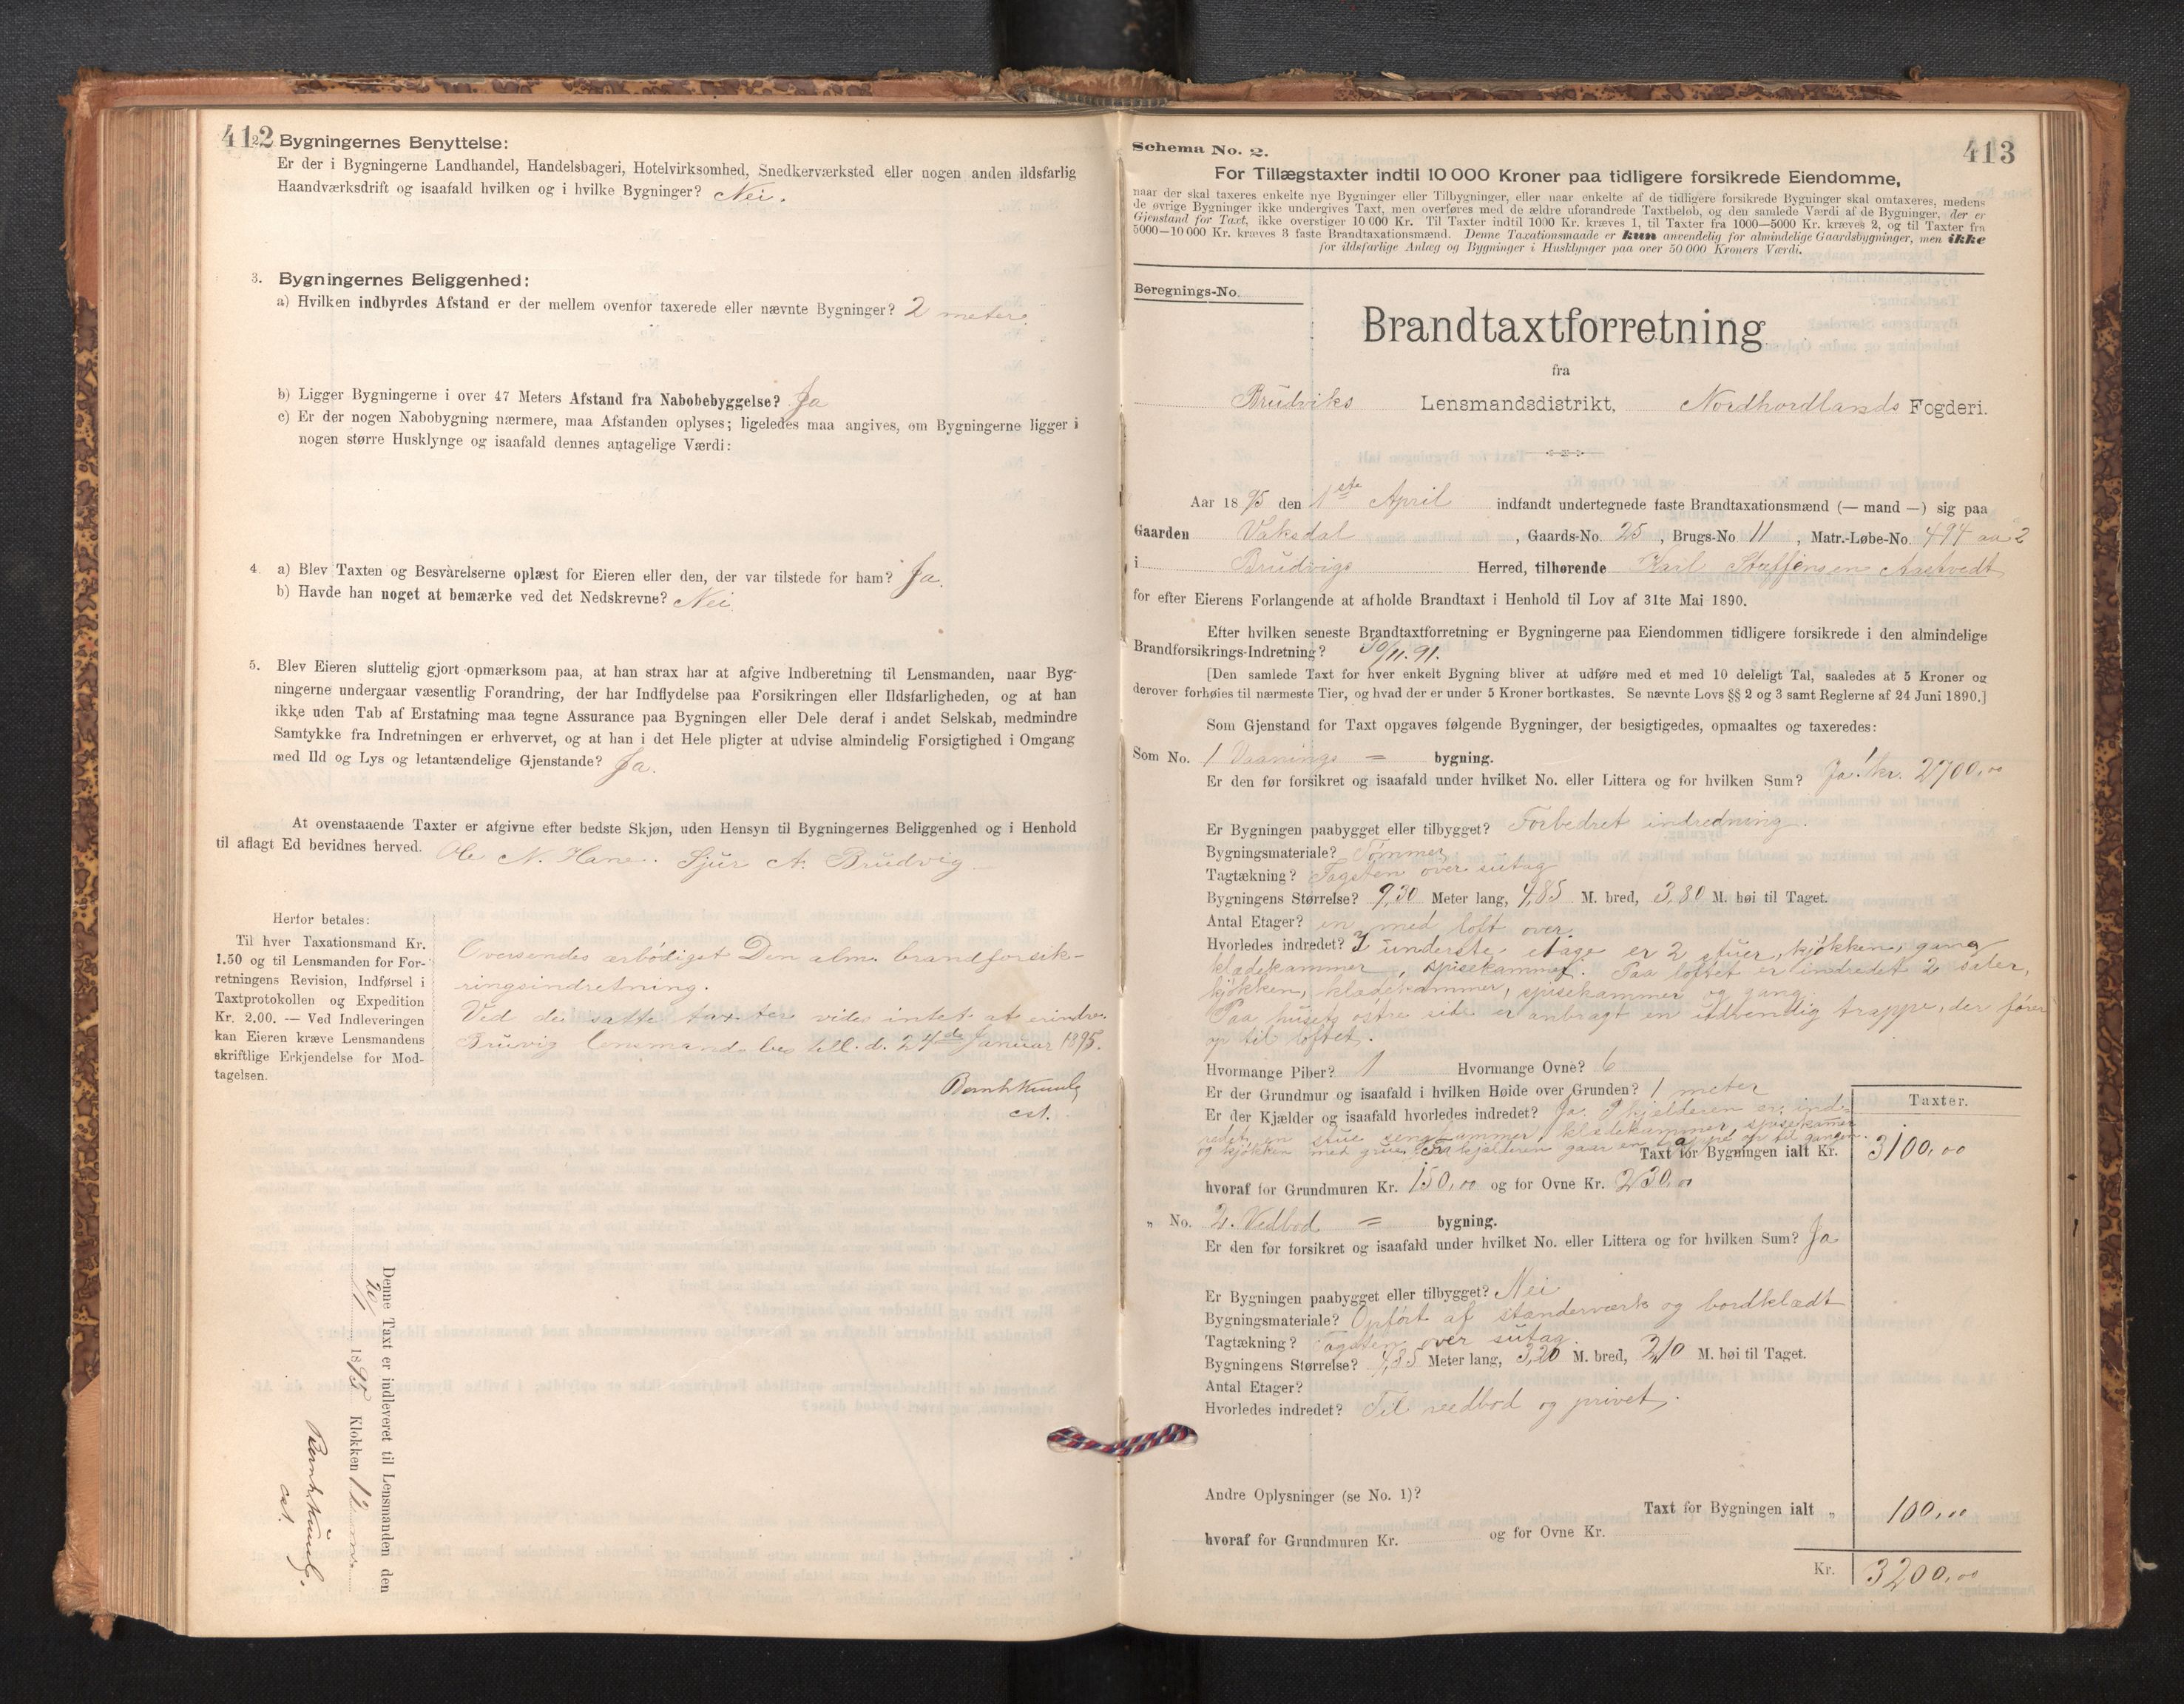 412
2. Bygningernes Benyttelse:
Er der i Bygningerne Landhandel, Handelsbageri, Hotelvirksomhed, Snedkerværksted eller nogen anden ildsfarlig
Haandværksdrift og isaafald hvilken og i hvilke Bygninger? Nei.
3. Bygningernes Beliggenhed:
a) Hvilken indbyrdes Afstand er der mellem ovenfor taxerede eller nævnte Bygninger? 2 meter.
b) Ligger Bygningerne i over 47 Meters Afstand fra Nabobebyggelse? Ja
c) Er der nogen Nabobygning nærmere, maa Afstanden oplyses; ligeledes maa angives, om Bygningerne ligger i
nogen større Husklynge og isaafald dennes antagelige Værdi:
4. a) Blev Taxten og Besvarelserne oplæst for Eieren eller den, der var tilstede for ham? Ja.
b) Havde han noget at bemærke ved det Nedskrevne? Nei
5. Blev Eieren sluttelig gjort opmærksom paa, at han strax har at afgive Indberetning til Lensmanden, naar Byg-
ningerne undergaar væsentlig Forandring, der har Indflydelse paa Forsikringen eller Ildsfarligheden, og at han
ikke uden Tab af Erstatning maa tegne Assurance paa Bygningen eller Dele deraf i andet Selskab, medmindre
Samtykke fra Indretningen er erhvervet, og at han i det Hele pligter at udvise almindelig Forsigtighed i Omgang
med Ild og Lys og letantændelige Gjenstande? Ja.
At ovenstaaende Taxter er afgivne efter bedste Skjøn, uden Hensyn til Bygningernes Beliggenhed og i Henhold
til aflagt Ed bevidnes herved. Ole N. Hane. Sjur A. Brudvig
Herfor betales:
Til hver Taxationsmand Kr.
1.50 og til Lensmanden for For-
retningens Revision, Indførsel i
Taxtprotokollen og Expedition
Kr. 2.00. — Ved Indleveringen
kan Eieren kræve Lensmandens
skriftlige Erkjendelse for Mod-
tagelsen.
Oversendes ærbødigst Den alm. brandforsik-
ringsindretning.
Ved de satte taxter vides intet at erindre.
Bruvig lensmands bestill. d. 24de Januar 1895.
cst.
Denne Taxt er indleveret til Lensmanden den
20/1 1895 Klokken 12
cst.
413
Schema No. 2.
For Tillægstaxter indtil 10 000 Kroner paa tidligere forsikrede Eiendomme,
naar der skal taxeres enkelte nye Bygninger eller Tilbygninger, eller naar enkelte af de tidligere forsikrede Bygninger skal omtaxeres, medens
de øvrige Bygninger ikke undergives Taxt, men overføres med de ældre uforandrede Taxtbeløb, og den samlede Værdi af de Bygninger, der er
Gjenstand for Taxt, ikke overstiger 10 000 Kr. Til Taxter indtil 1000 Kr. kræves 1, til Taxter fra 1000—5000 Kr. kræves 2, og til Taxter fra
5000—10 000 Kr. kræves 3 faste Brandtaxationsmænd. Denne Taxationsmaade er kun anvendelig for almindelige Gaardsbygninger, men ikke
for ildsfarlige Anlæg og Bygninger i Husklynger paa over 50 000 Kroners Værdi.
Beregnings-No.
Brandtaxtforretning
fra
Brudviks Lensmandsdistrikt, Nordhordlands Fogderi.
Aar 1895 den 1ste April indfandt undertegnede faste Brandtaxationsmænd (— mand —) sig paa
Gaarden Vaksdal, Gaards-No. 25, Brugs-No 11, Matr.-Løbe-No. 494 aa 2
i Brudvigs Herred, tilhørende Karl Steffensen
for efter Eierens Forlangende at afholde Brandtaxt i Henhold til Lov af 31te Mai 1890.
Efter hvilken seneste Brandtaxtforretning er Bygningerne paa Eiendommen tidligere forsikrede i den almindelige
Brandforsikrings-Indretning? 30/11.91.
[Den samlede Taxt for hver enkelt Bygning bliver at udføre med et med 10 deleligt Tal, saaledes at 5 Kroner og
derover forhøies til nærmeste Tier, og hvad der er under 5 Kroner bortkastes. Se nævnte Lovs §§ 2 og 3 samt Reglerne af 24 Juni 1890.]
Som Gjenstand for Taxt opgaves følgende Bygninger, der besigtigedes, opmaaltes og taxeredes:
Som No. 1 Vaanings = bygning.
Er den før forsikret og isaafald under hvilket No. eller Littera og for hvilken Sum? Ja! kr. 2700,00
Er Bygningen paabygget eller tilbygget? Forbedret indredning.
Bygningsmateriale? Tømmer
Tagtækning? Tagsten over sutag
Bygningens Størrelse? 9,30 Meter lang, 4,85 M. bred, 3,80 M. høi til Taget.
Antal Etager? en med loft over.
Hvorledes indredet? I underste etage er 2 stuer, kjøkken, gang
klædekammer, spisekammer. Paa loftet er indredet 2 saler,
kjøkken, klædekammer, spisekammer og gang.
Paa husets østre side er anbragt en udvendig trappe, der fører
op til loftet.
Hvormange Piber? 1 Hvormange Ovne? 6
Er der Grundmur og isaafald i hvilken Høide over Grunden? 1 meter
Er der Kjælder og isaafald hvorledes indredet? Ja. I kjælderen er ind-
redet en stue sengkammer, klædekammer, spisekamer
og kjøkken med grue. Fra kjælderen gaar en trappe op til gangen.
Taxter.
Taxt for Bygningen ialt Kr. 3100,00
hvoraf for Grundmuren Kr. 150,00 og for Ovne Kr. 230,00
„ No. 2. Vedbod = bygning.
Er den før forsikret og isaafald under hvilket No. eller Littera og for hvilken Sum? Ja
Er Bygningen paabygget eller tilbygget? Nei
Bygningsmateriale? Opført af standerværk og bordklædt
Tagtækning? Tagsten over sutag.
Bygningens Størrelse? 4,85 Meter lang, 3,20 M. bred, 2,10 M. høi til Taget.
Antal Etager?
Hvorledes indredet? Til vedbod og privet.
Andre Oplysninger (se No. 1)?
Taxt for Bygningen ialt „ 100,00
hvoraf for Grundmuren Kr. og for Ovne Kr.
Kr. 3200,00